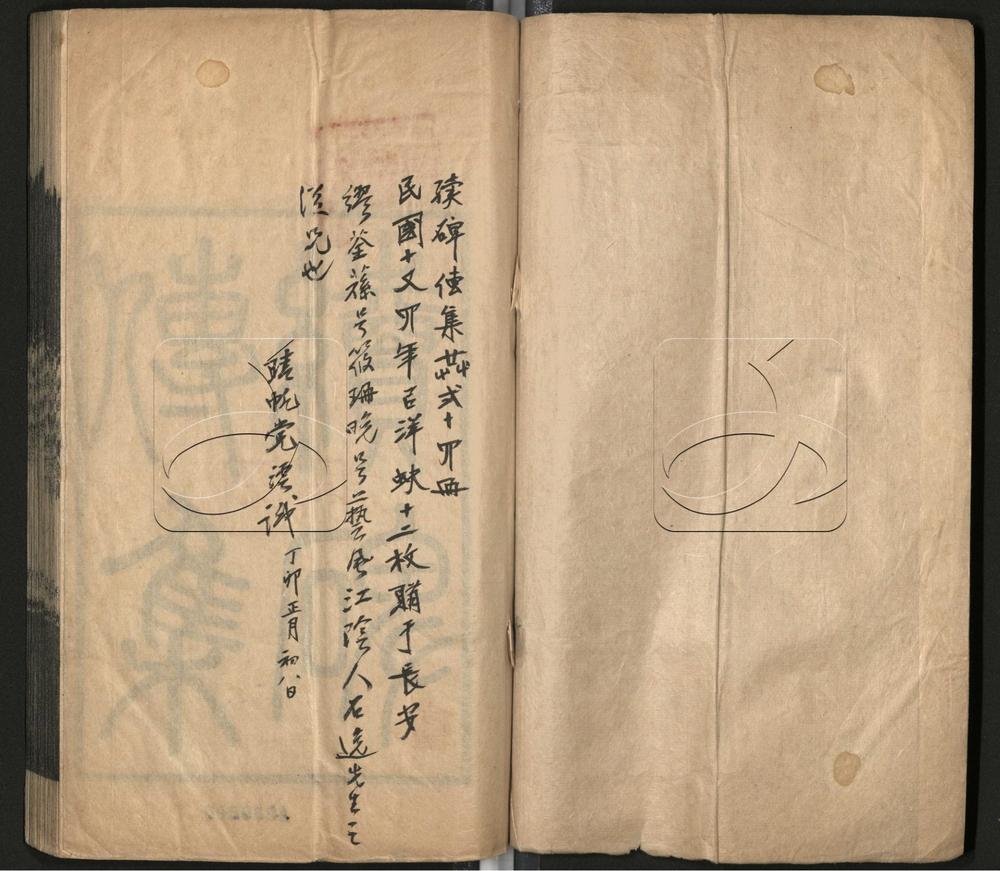 續碑傳集共弍十四冊
民國十又四年以洋蚨十二枚購于長安
繆荃蓀号筱珊晚号藝風江陰人石逸先生之
從兄也
晴帆党澐識 丁卯正月初八日